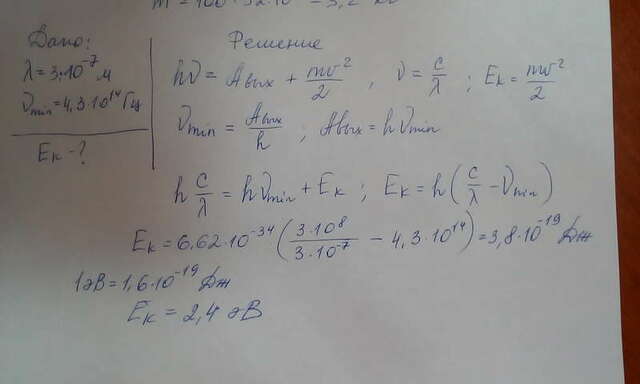 m = 100 · 32 · 10
Дано:
λ = 3·10⁻⁷ м
ν min = 4,3·10¹⁴ Гц
Eк - ?
Решение
hν = Aвых + mv²/2 , ν = c/λ ; Eк = mv²/2
ν min = Aвых/h ; Aвых = hν min
h c/λ = hν min + Eк ; Eк = h(c/λ - ν min)
Eк = 6,62·10⁻³⁴ (3·10⁸/3·10⁻⁷ - 4,3·10¹⁴) = 3,8·10⁻¹⁹ Дж
1 эВ = 1,6·10⁻¹⁹ Дж
Eк = 2,4 эВ